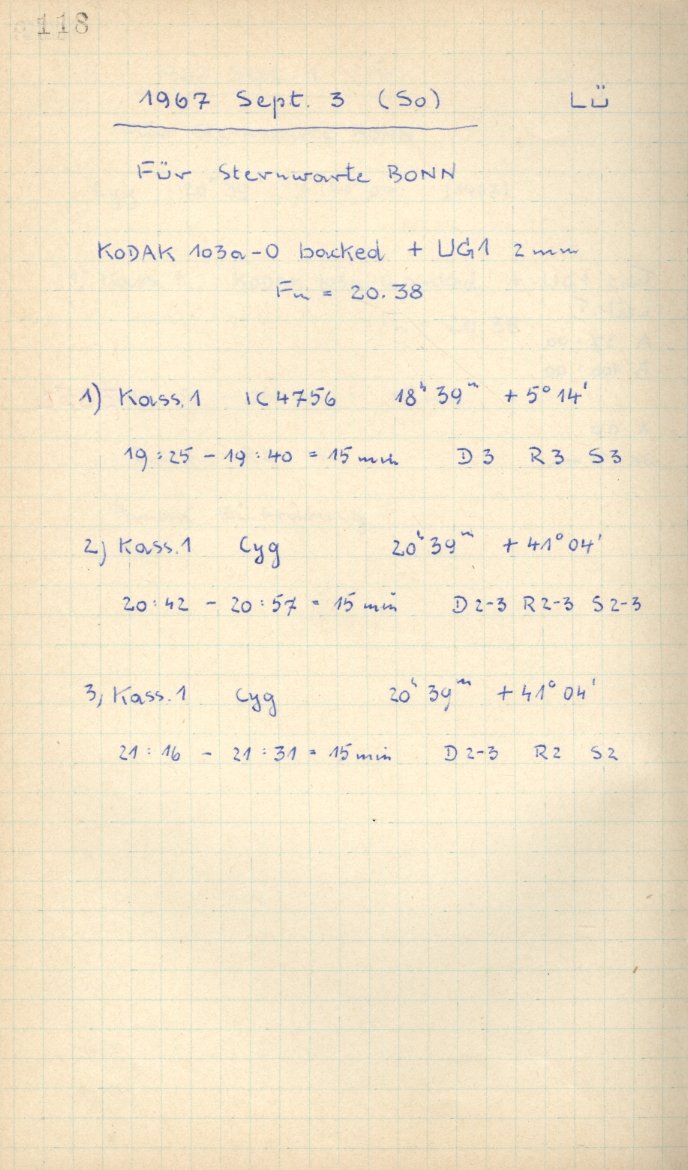 118
1967 Sept. 3 (So) LÜ
Für Sternwarte BONN
KODAK 103a-O backed + UG1 2mm
Fn = 20.38
1) Kass. 1 IC 4756 18ʰ 39ᵐ + 5° 14'
19:25 - 19:40 = 15 min D 3 R 3 S 3
2) Kass. 1 Cyg 20ʰ 39ᵐ + 41° 04'
20:42 - 20:57 = 15 min D 2-3 R 2-3 S 2-3
3) Kass. 1 Cyg 20ʰ 39ᵐ + 41° 04'
21:16 - 21:31 = 15 min D 2-3 R 2 S 2